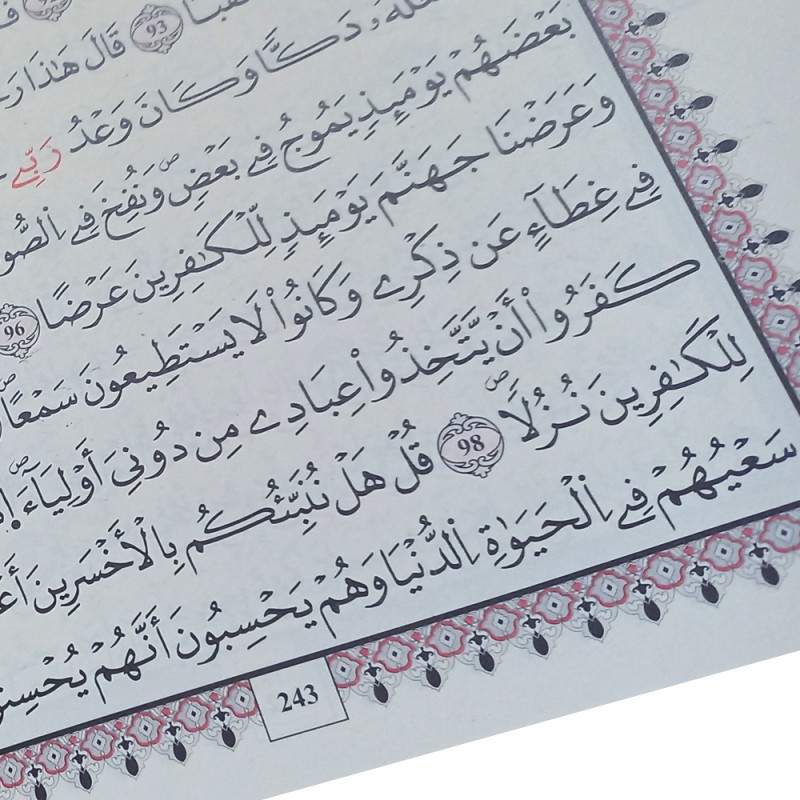 93 قَالَ هَٰذَا
دَكّٗا وَكَانَ وَعْدُ رَبِّے
بَعْضَهُمْ يَوْمَئِذٖ يَمُوجُ فِے بَعْضٖۖ وَنُفِخَ فِے اِ۬لصُّو
وَعَرَضْنَا جَهَنَّمَ يَوْمَئِذٖ لِّلْكَٰفِرِينَ عَرْضًا 96
فِے غِطَآءٍ عَن ذِكْرِے وَكَانُواْ لَا يَسْتَطِيعُونَ سَمْعًاۖ
كَفَرُوٓاْ أَنْ يَّتَّخِذُواْ عِبَادِے مِن دُونِيَ أَوْلِيَآءَۖ
لِلْكَٰفِرِينَ نُزُلٗاۖ 98 قُلْ هَلْ نُنَبِّئُكُم بِالْأَخْسَرِينَ
سَعْيُهُمْ فِے اِ۬لْحَيَوٰةِ اِ۬لدُّنْيَا وَهُمْ يَحْسِبُونَ أَنَّهُمْ يُحْسِنُو
243